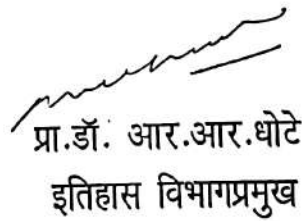 प्रा.डॉ. आर.आर.धोटे
इतिहास विभागप्रमुख